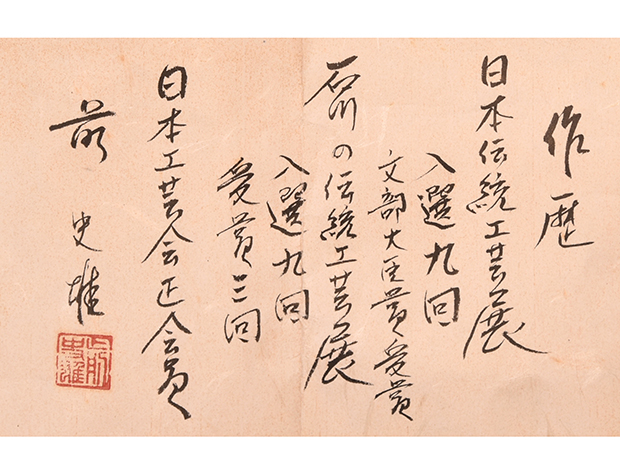 作歴
日本伝統工芸展
入選九回
文部大臣賞受賞
石川の伝統工芸展
入選九回
受賞三回
日本工芸会正会員
前史雄
前史雄